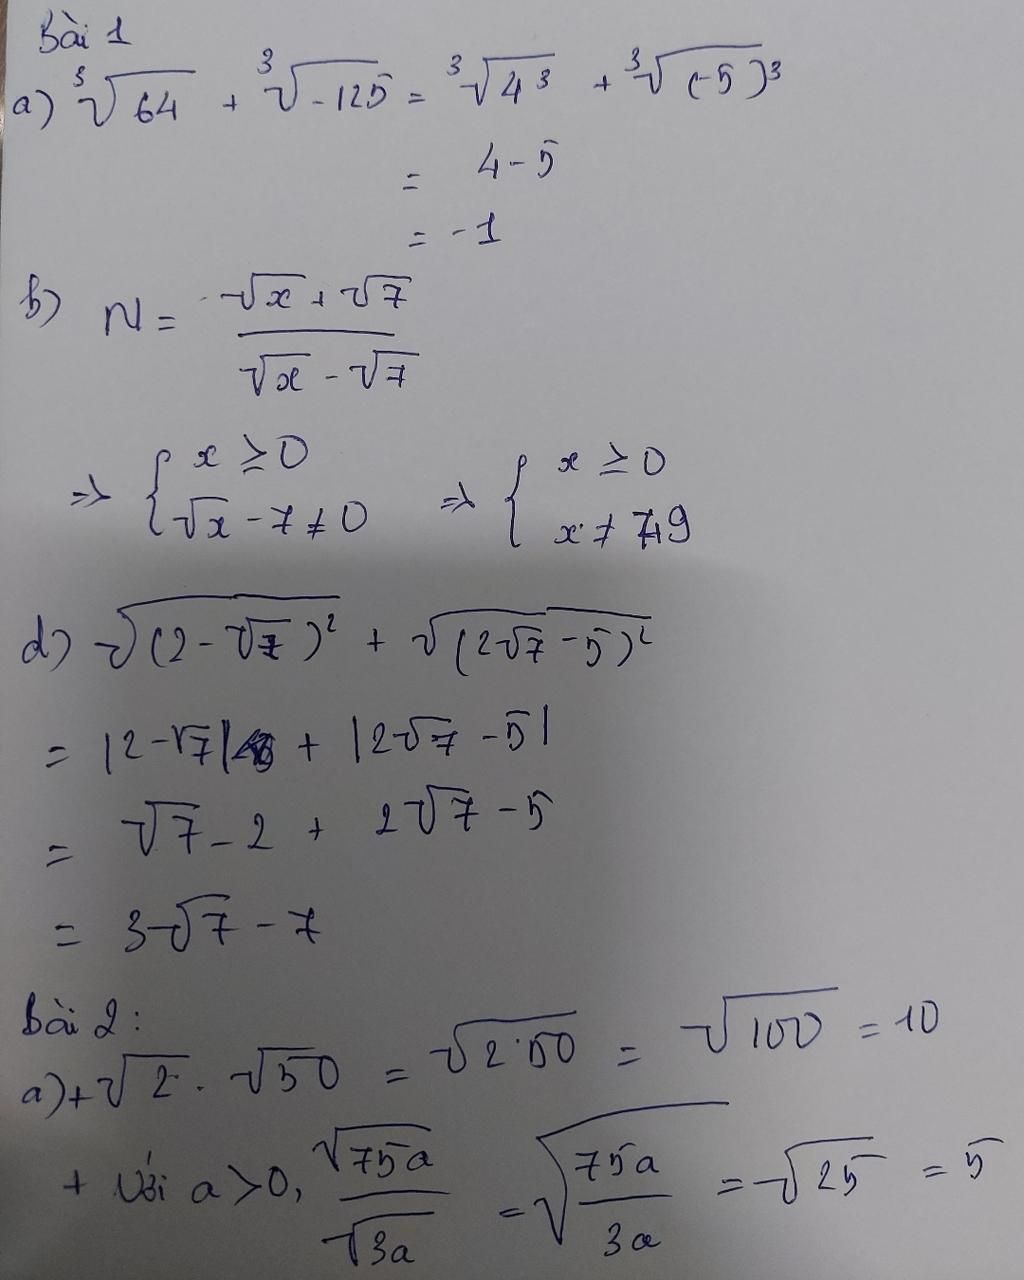 Bài 1
a) ∛64 + ∛-125 = ∛4³ + ∛(-5)³
= 4 - 5
= -1
b) N = (√x + √7)/(√x - √7)
=> { x ≥ 0 => { x ≥ 0
{ √x - 7 ≠ 0 { x ≠ 49
d) √(2-√7)² + √(2√7 - 5)²
= |2-√7| + |2√7 - 5|
= √7 - 2 + 2√7 - 5
= 3√7 - 7
Bài 2:
a) + √2 . √50 = √2.50 = √100 = 10
+ Với a > 0, √75a/√3a = √(75a/3a) = √25 = 5